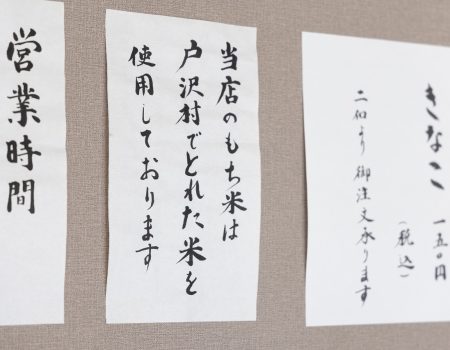 きなこ 一五〇円
(税込)
二個より御注文承ります
当店のもち米は
戸沢村でとれた米を
使用しております
営業時間